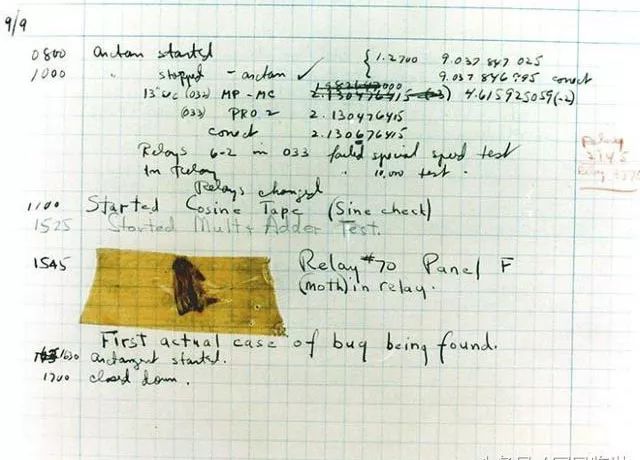 9/9
0800 arctan started { 1.2700 9.037 847 025
1000 " stopped - arctan ✓ 9.037 846 795 correct
13"uc (032) MP - MC 2.130476415 4.615925059(-2)
(033) PRO 2 2.130476415
correct 2.130676415
Relays 6-2 in 033 failed special speed test
In Relay " 10,000 test.
Relays changed
1100 Started Cosine Tape (Sine check)
1525 Started Mult+Adder Test.
1545 Relay #70 Panel F
(moth) in relay.
First actual case of bug being found.
1630 arctangent started.
1700 closed down.
Relay